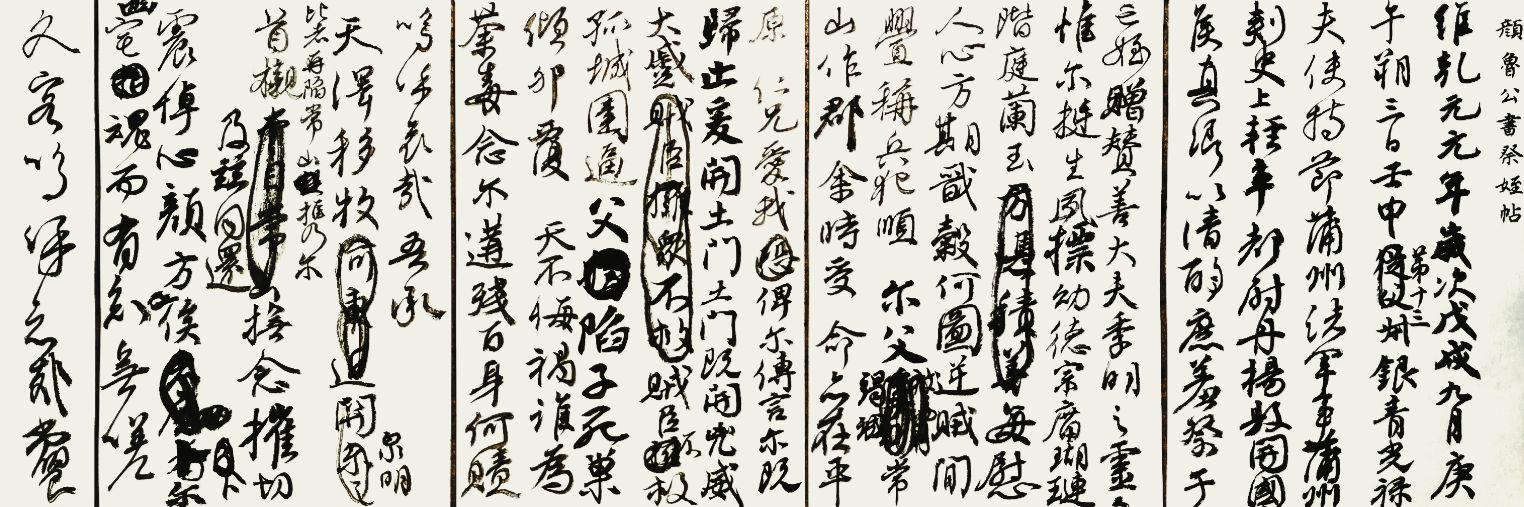 顏魯公書祭姪帖
維乾元元年歲次戊戌九月庚
午朔三日壬申第十三州銀青光祿
夫使持節蒲州諸軍事蒲州
刺史上輕車都尉丹楊縣開國
侯真卿以清酌庶羞祭于
亡姪贈贊善大夫季明之靈
惟爾挺生夙標幼德宗廟瑚璉
階庭蘭玉方憑積善每慰
人心方期戩穀何圖逆賊間
釁稱兵犯順爾父常
山作郡余時受命亦在平
原仁兄愛我恐俾爾傳言爾既
歸止爰開土門土門既開兇威
大蹙賊臣擁眾不救賊臣不救
孤城圍逼父陷子死巢
傾卵覆天不悔禍誰為
荼毒念爾遘殘百身何贖
嗚呼哀哉吾承
天澤移牧河東近泉明
比者再陷常山提攜爾
首櫬及茲同還撫念摧切
震悼心顏方俟
宅魂而有知無嗟
久客嗚呼哀哉尚饗